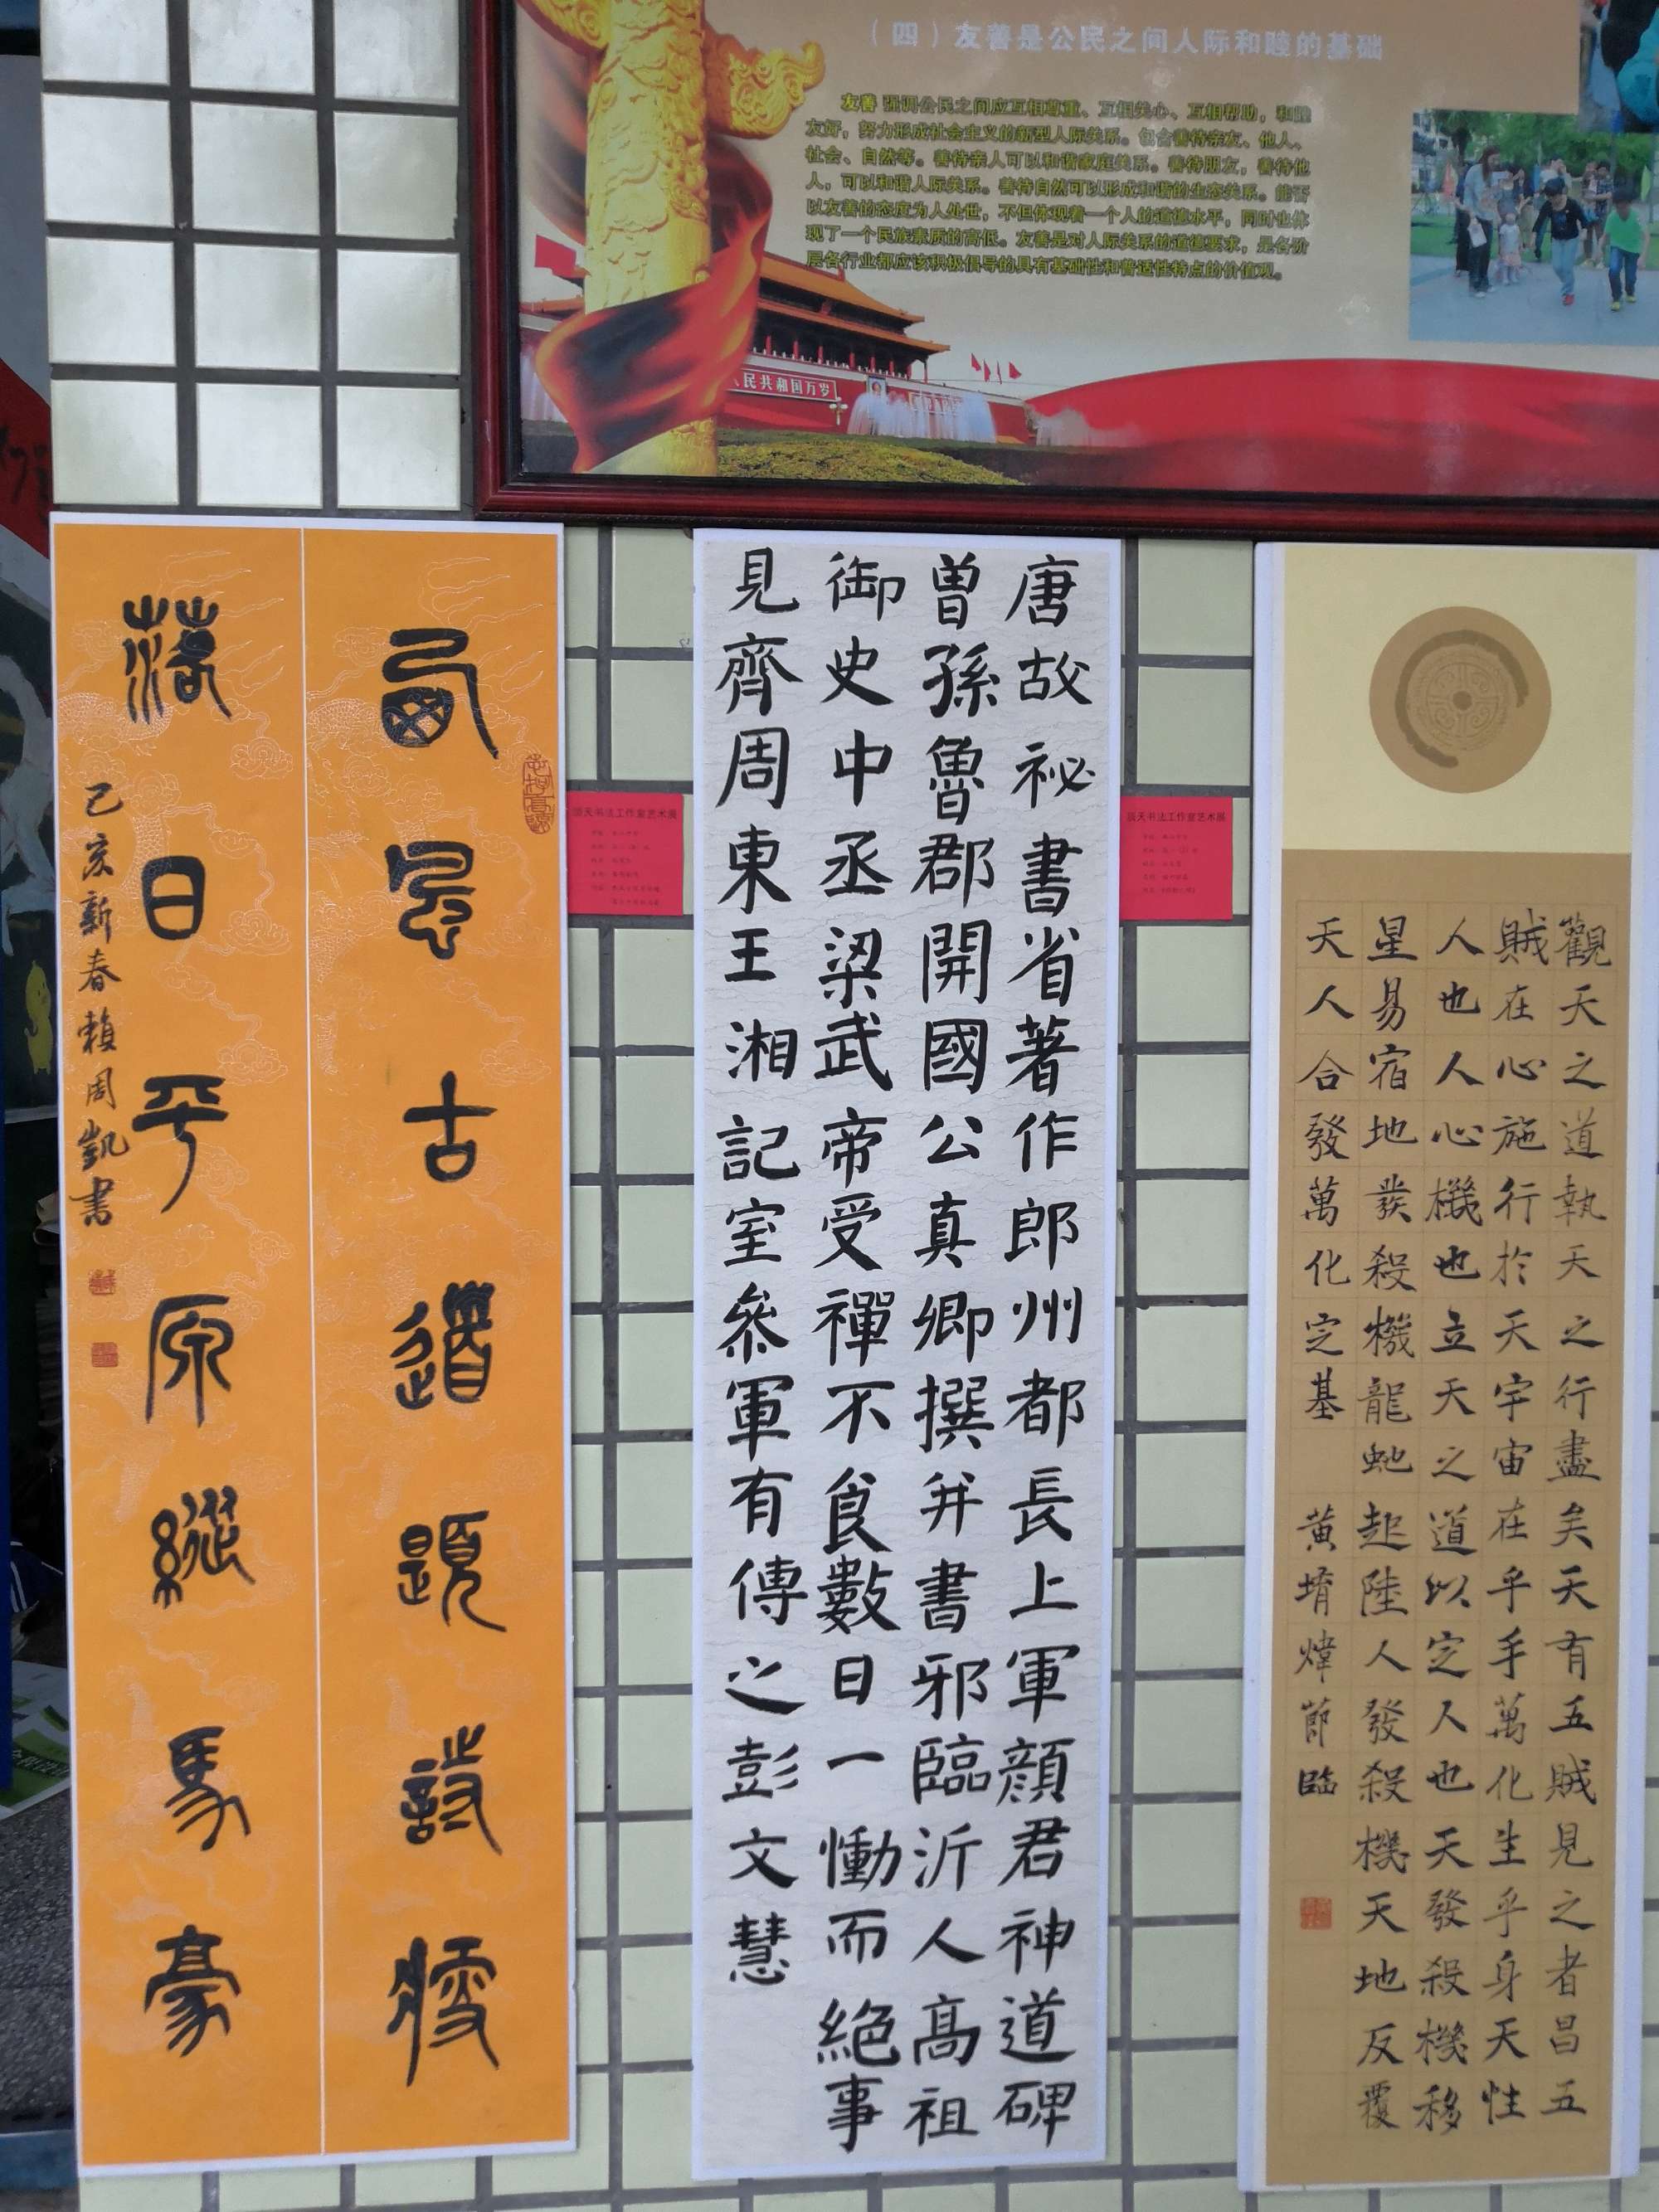 （四）友善是公民之间人际和睦的基础
友善 强调公民之间应互相尊重、互相关心、互相帮助，和睦
友好，努力形成社会主义的新型人际关系。包含善待亲友、他人、
社会、自然等。善待亲人可以和谐家庭关系。善待朋友，善待他
人，可以和谐人际关系。善待自然可以形成和谐的生态关系。能否
以友善的态度为人处世，不但体现着一个人的道德水平，同时也体
现了一个民族素质的高低。友善是对人际关系的道德要求，是各阶
层各行业都应该积极倡导的具有基础性和普适性特点的价值观。
人民共和国万岁
西風古道題詩瘦
落日平原縱馬豪
己亥新春賴周凱書
天书法工作室艺术展
唐故祕書省著作郎州都長上軍顏君神道碑
曾孫魯郡開國公真卿撰并書邪臨沂人高祖
御史中丞梁武帝受禪不食數日一慟而絕事
見齊周東王湘記室參軍有傳之彭文慧
天书法工作室艺术展
觀天之道執天之行盡矣天有五賊見之者昌五
賊在心施行於天宇宙在乎手萬化生乎身天性
人也人心機也立天之道以定人也天發殺機移
星易宿地發殺機龍虵起陸人發殺機天地反覆
天人合發萬化定基
黃堉煒節臨